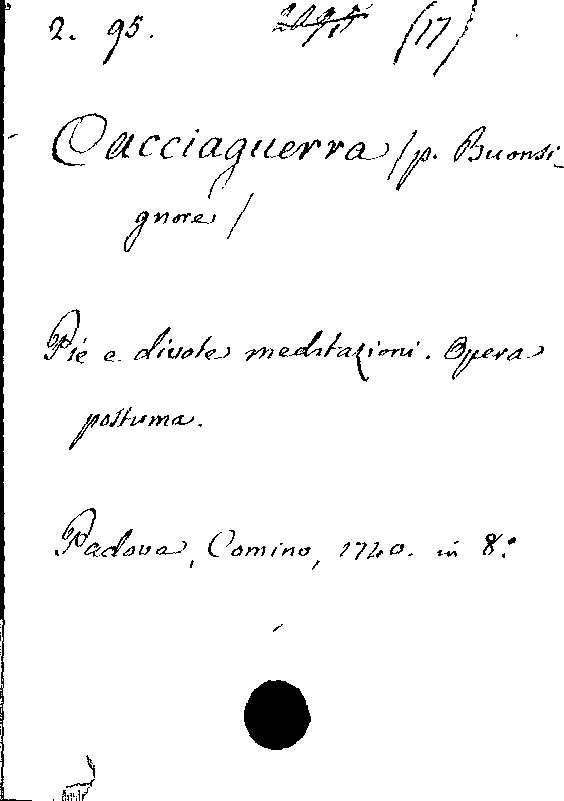 2. 95. (17)
Cacciaguerra /p. Buonsi-
gnore/
Pie e divote meditazioni. Opera
postuma.
Padova, Comino, 1740. in 8.°